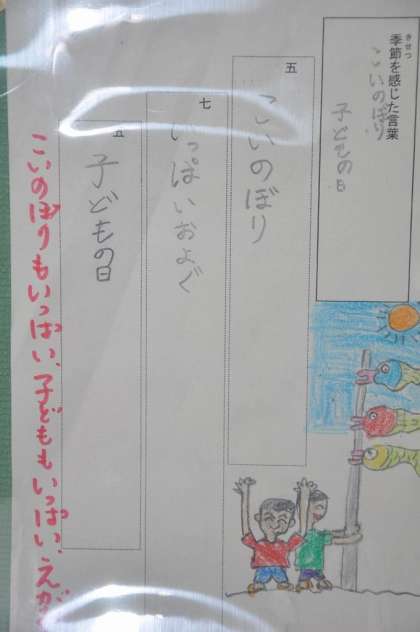 きせつ
季節を感じた言葉
こいのぼり
子どもの日
五
こいのぼり
七
いっぱいおよぐ
五
子どもの日
こいのぼりもいっぱい、子どももいっぱい、えが